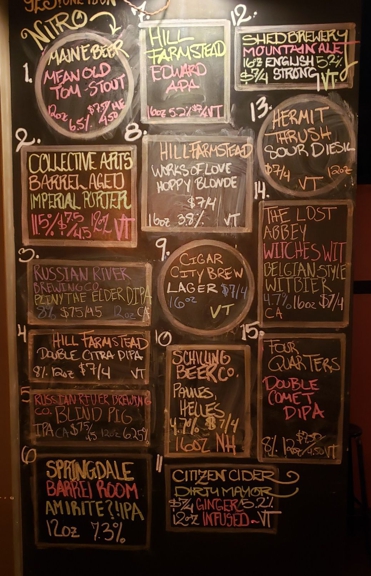 NITRO
1.
MAINE BEER
MEAN OLD
TOM - STOUT
12oz
6.5%
ME
4.50
2.
COLLECTIVE ARTS
BARREL AGED
IMPERIAL PORTER
VT
3.
RUSSIAN RIVER
BREWING CO.
PLINY THE ELDER DIPA
8% $7.5/4.5 12oz CA
4
HILL FARMSTEAD
DOUBLE CITRA DIPA
8% 12oz $7/4 VT
5
RUSSIAN RIVER BREWING
CO BLIND PIG
IPA CA 12oz 6.25%
6
SPRINGDALE
BARREL ROOM
AM I RITE?! IPA
12oz 7.3%
HILL
FARMSTEAD
EDWARD
APA
16oz 5.2% $7/4 VT
8.
HILL FARMSTEAD
WORKS OF LOVE
HOPPY BLONDE
$7/4
16oz 3.8% VT
9.
CIGAR
CITY BREW
LAGER $7/4
16oz
VT
10
SCHILLING
BEER CO.
HELLES
4.7% $7/4
16oz NH
11
CITIZEN CIDER
DIRTY MAYOR
$7/4 GINGER 5.2%
12oz INFUSED - VT
12.
SHED BREWERY
MOUNTAIN ALE
16oz ENGLISH
$7/4 STRONG VT
13.
HERMIT
THRUSH
SOUR DIESIL
$7/4 12oz
VT
14.
THE LOST
ABBEY
WITCHES WIT
BELGIAN STYLE
WITBIER
4.7% 16oz $7/4
CA
15.
FOUR
QUARTERS
DOUBLE
COMET
DIPA
8% 12oz 4.50 VT